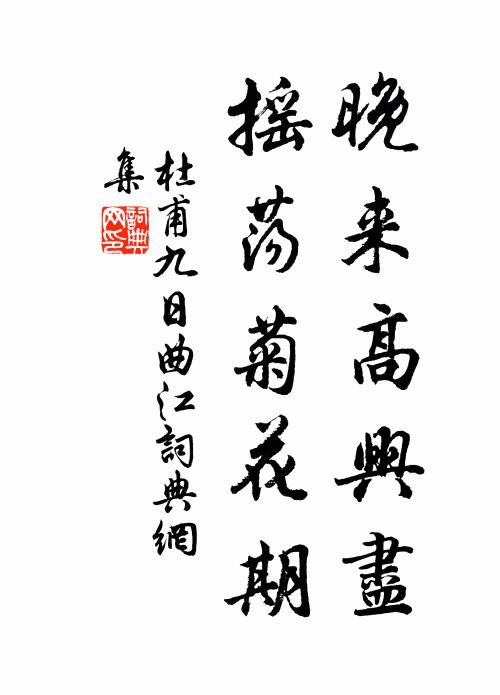 晚来高興盡
摇荡菊花期
杜甫九日曲江詞典網
集
詞典网印